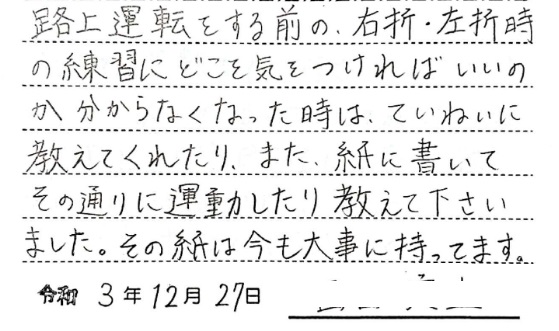 路上運転をする前の、右折・左折時
の練習にどこを気をつければいいの
か分からなくなった時は、ていねいに
教えてくれたり、また、紙に書いて
その通りに運動したり教えて下さい
ました。その紙は今も大事に持ってます。
令和 3年12月27日